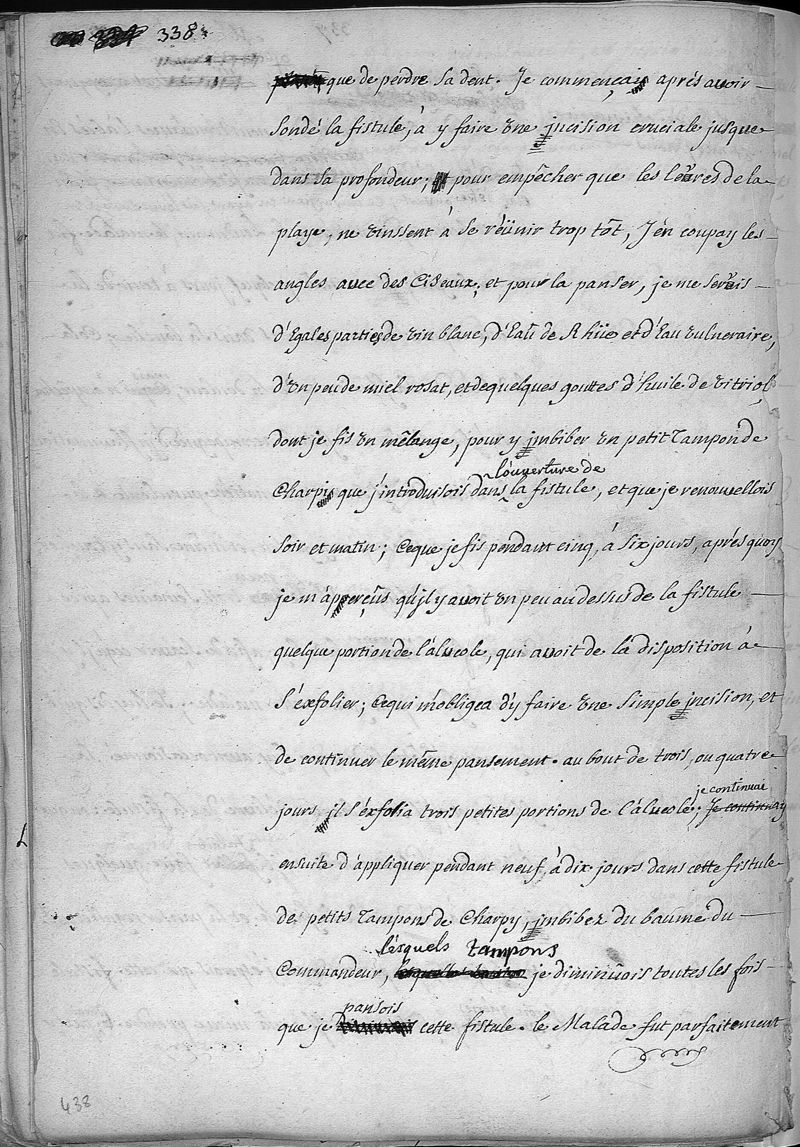 338
que de perdre sa dent. Je commençai aprés avoir
sondé la fistule, à y faire une jncision cruciale jusque
dans sa profondeur; pour empêcher que les levres de la
playe, ne vinssent à se réünir trop tôt, J'en coupay les
angles avec des Ciseaux, et pour la panser, je me servis
d'Egales parties de vin blanc, d'Eau de Rhüe et d'Eau vulneraire,
d'un peu de miel rosat, et de quelques gouttes d'huile de vitriol,
dont je fis un mêlange, pour y jmbiber un petit Tampon de
l'ouverture de
Charpy que j'introduisois dans la fistule, et que je renouvellois
soir et matin; Ce que je fis pendant cinq, à six jours, aprés quoy
je m'apperçûs qu'jl y avoit un peu au dessus de la fistule
quelque portion de l'alveole, qui avoit de la disposition à
s'exfolier; Ce qui m'obligea d'y faire une simple jncision, et
de continuer le même pansement. au bout de trois, ou quatre
je continuai
jours jl s'éxfolia trois petites portions de l'alveole; Je continuay
ensuite d'appliquer pendant neuf, à dix jours dans cette fistule
de petits Tampons de Charpy, jmbibez du baume du
lesquels tampons
Commandeur, je diminuois toutes les fois
pansois
que je cette fistule. le Malade fut parfaitement
438